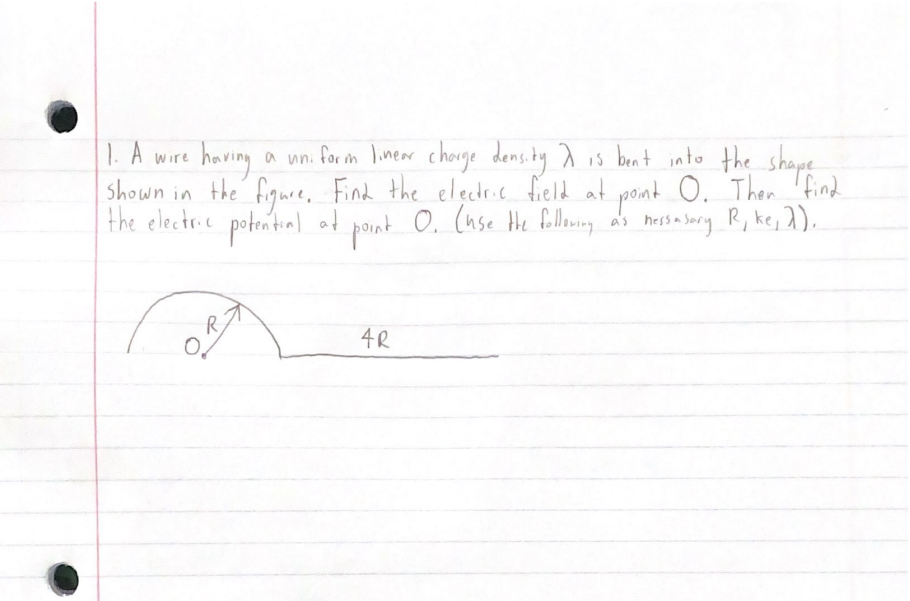 1. A wire having a uniform linear charge density λ is bent into the shape
shown in the figure. Find the electric field at point O. Then find
the electric potential at point O. (use the following as nessasary R, ke, λ).
R
O
4R